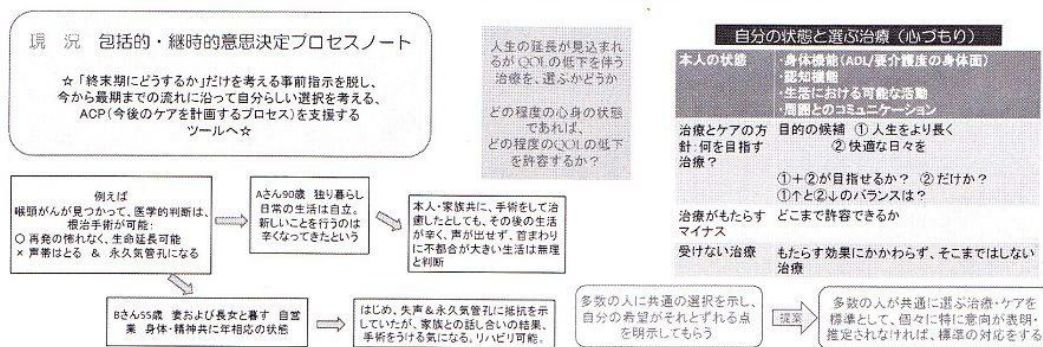 現 況 包括的・継時的意思決定プロセスノート
☆「終末期にどうするか」だけを考える事前指示を脱し、
今から最期までの流れに沿って自分らしい選択を考える、
ACP(今後のケアを計画するプロセス)を支援する
ツールへ☆
人生の延長が見込まれ
るがQOLの低下を伴う
治療を、選ぶかどうか
どの程度の心身の状態
であれば、
どの程度のQOLの低下
を許容するか？
例えば
喉頭がんが見つかって、医学的判断は、
根治手術が可能:
○ 再発の怖れなく、生命延長可能
× 声帯はとる ＆ 永久気管孔になる
Aさん90歳 独り暮らし
日常の生活は自立。
新しいことを行うのは
辛くなってきたという
本人・家族共に、手術をして治
癒したとしても、その後の生活
が辛く、声が出せず、首まわり
に不都合が大きい生活は無理
と判断
Bさん55歳 妻および長女と暮す 自営
業 身体・精神共に年相応の状態
はじめ、失声＆永久気管孔に抵抗を示
していたが、家族との話し合いの結果、
手術をうける気になる。リハビリ可能。
自分の状態と選ぶ治療（心づもり）
本人の状態
・身体機能(ADL/要介護度の身体面)
・認知機能
・生活における可能な活動
・周囲とのコミュニケーション
治療とケアの方
針:何を目指す
治療？
目的の候補 ① 人生をより長く
② 快適な日々を
①＋②が目指せるか？ ②だけか？
①↑と②↓のバランスは？
治療がもたらす
マイナス
どこまで許容できるか
受けない治療
もたらす効果にかかわらず、そこまではしない
治療
多数の人に共通の選択を示し、
自分の希望がそれとずれる点
を明示してもらう
提案
多数の人が共通に選ぶ治療・ケアを
標準として、個々に特に意向が表明・
推定されなければ、標準の対応をする